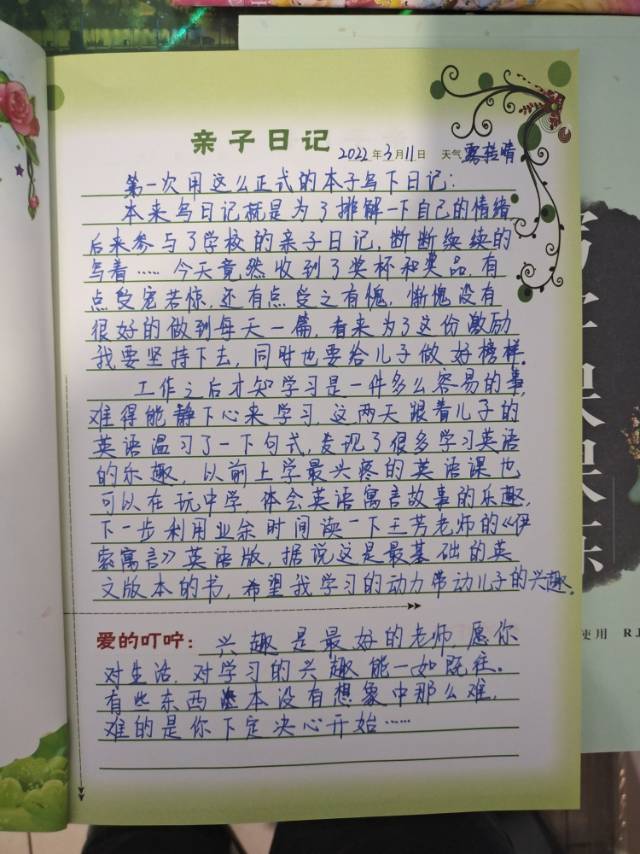 亲子日记 2022年3月11日 天气 雾转晴
第一次用这么正式的本子写下日记:
本来写日记就是为了排解一下自己的情绪
后来参与了学校的亲子日记,断断续续的
写着……今天竟然收到了奖杯和奖品,有
点受宠若惊,还有点受之有愧,惭愧没有
很好的做到每天一篇,看来为了这份激励
我要坚持下去,同时也要给儿子做好榜样。
工作之后才知学习是一件多么容易的事,
难得能静下心来学习,这两天跟着儿子的
英语温习了一下句式,发现了很多学习英语
的乐趣,以前上学最头疼的英语课也
可以在玩中学,体会英语寓言故事的乐趣,
下一步利用业余时间读一下王芳老师的《伊
索寓言》英语版,据说这是最基础的英
文版本的书,希望我学习的动力带动儿子的兴趣。
爱的叮咛: 兴趣是最好的老师,愿你
对生活,对学习的兴趣能一如既往。
有些东西本没有想象中那么难,
难的是你下定决心开始……
使用 RJ